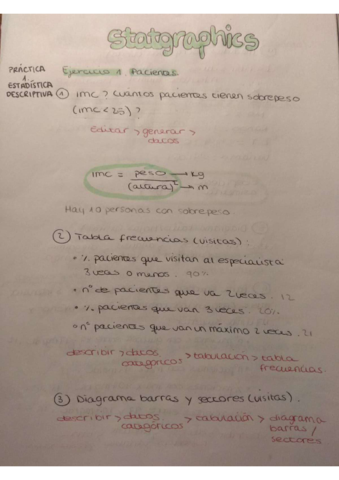 Statgraphics
PRÁCTICA
1
ESTADÍSTICA
DESCRIPTIVA
Ejercicio 1 Pacientes
① imc? Cuántos pacientes tienen sobrepeso
(imc < 25)?
Editar > generar >
datos
imc = peso → kg
(altura)² → m
Hay 10 personas con sobrepeso
② Tabla frecuencias (visitas):
• % pacientes que visitan al especialista
3 veces o menos. 90%
• nº de pacientes que va 2 veces. 12
• % pacientes que van 3 veces. 20%
• nº pacientes que van un máximo 2 veces. 21
describir > datos
categóricos > tabulación > tabla
frecuencias.
③ Diagrama barras y sectores (visitas).
describir > datos
categóricos > tabulación > diagrama
barras /
sectores